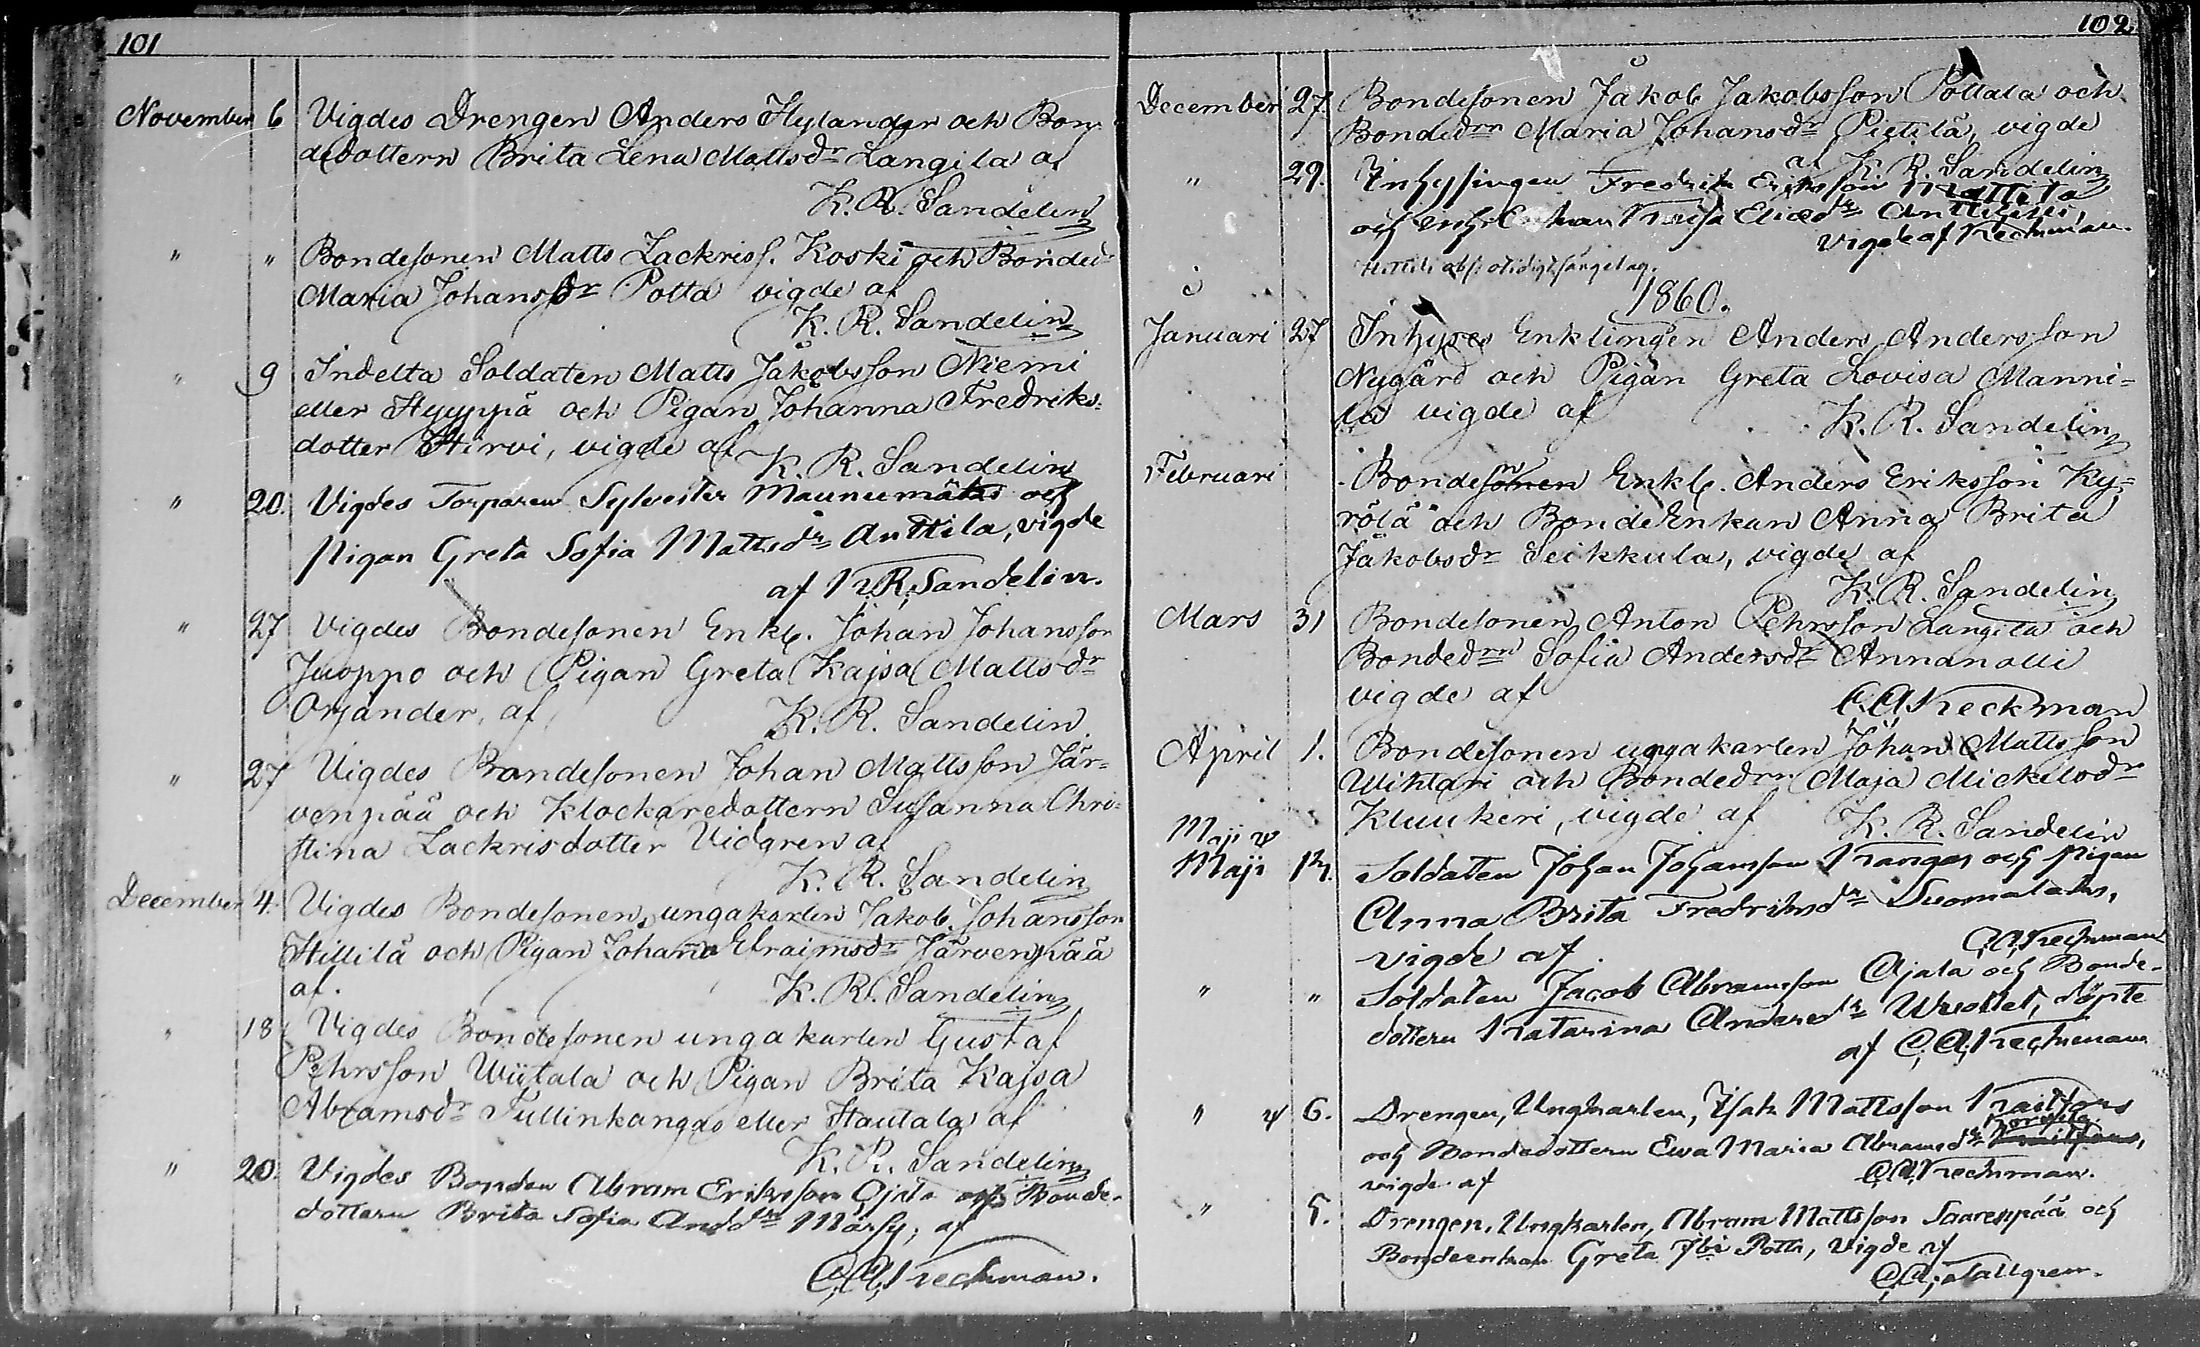 101
November 6 Vigdes Drengen Anders Hylander och Bon-
dedottern Brita Lena Mattsdr Langila af
K. R. Sandelin
" " Bondesonen Matts Zackriss. Koski och Bonded:
Maria Johansdr Potta vigde af
K. R. Sandelin
" 9 Indelta Soldaten Matts Jakobsson Niemi
eller Hyyppä och Pigan Johanna Fredriks-
dotter Hirvi, vigde af
K. R. Sandelin
" 20. Vigdes Torparen Sylvester Maunumäki och
Pigan Greta Sofia Mattsdr Anttila, vigde
af K. R. Sandelin.
" 27 Vigdes Bondesonen Enkl. Johan Johansson
Juoppo och Pigan Greta Kajsa Mattsdr
Orjander, af
K. R. Sandelin.
" 27 Vigdes Bondesonen Johan Mattsson Jär-
venpää och Klockaredottern Susanna Chri-
stina Zackrisdotter Vidgren af
K. R. Sandelin
December 4. Vigdes Bondesonen, ungakarlen Jakob Johansson
Hillilä och Pigan Johanna Efraimsdr Järvenpää
af.
K. R. Sandelin
" 18 Vigdes Bondesonen ungakarlen Gustaf
Pehrsson Wiitala och Pigan Brita Kajsa
Abramsdr Tullinkangas eller Hautala af
K. R. Sandelin
" 20. Vigdes Bonden Abram Eriksson Ojala och Bonde-
dottern Brita Sofia Andsdr Märsy, af
C. A. Keckman.
102
December 27. Bondesonen Jakob Jakobsson Pottala och
Bondedrn Maria Johansdr Pietilä, vigde
af K. R. Sandelin
" 29. Inhysingen Fredrik Eriksson Mattila
och Enkan Kaisa Eliædr Anttila,
vigde af Keckman.
1860.
Januari 27 Inhyses Enklingen Anders Andersson
Nygård och Pigan Greta Lovisa Manni-
la vigde af
K. R. Sandelin
Februari Bondesonen Enkl. Anders Eriksson Ky-
rölä och BondeEnkan Anna Brita
Jakobsdr Seikkula, vigde af
K. R. Sandelin
Mars 31 Bondesonen Anton Pehrsson Langila och
Bondedrn Sofia Andersdr Annanolli
vigde af
C. A. Keckman
April 1. Bondesonen ungakarlen Johan Mattsson
Wihtari och Bondedrn Maja Mickelsdr
Kluukeri, vigde af
K. R. Sandelin
Maji
Maji Soldaten Johan Johansson Kangas och Pigan
Anna Brita Fredriksdr Suomalaks,
vigde af
C. A. Keckman
" " Soldaten Jacob Abramsson Ojala och Bonde-
dottern Katarina Andersdr döpte
af C. A. Keckman
" 6. Drengen, Ungkarlen, Isak Mattsson Kaitfors
och Bondedottern Ewa Maria Abramsdr
vigde af
C. A. Keckman.
" 5. Drengen, Ungkarlen, Abram Mattsson Saarenpää och
Bondeenkan Greta Potti, vigde af
C. A. Tallgren.